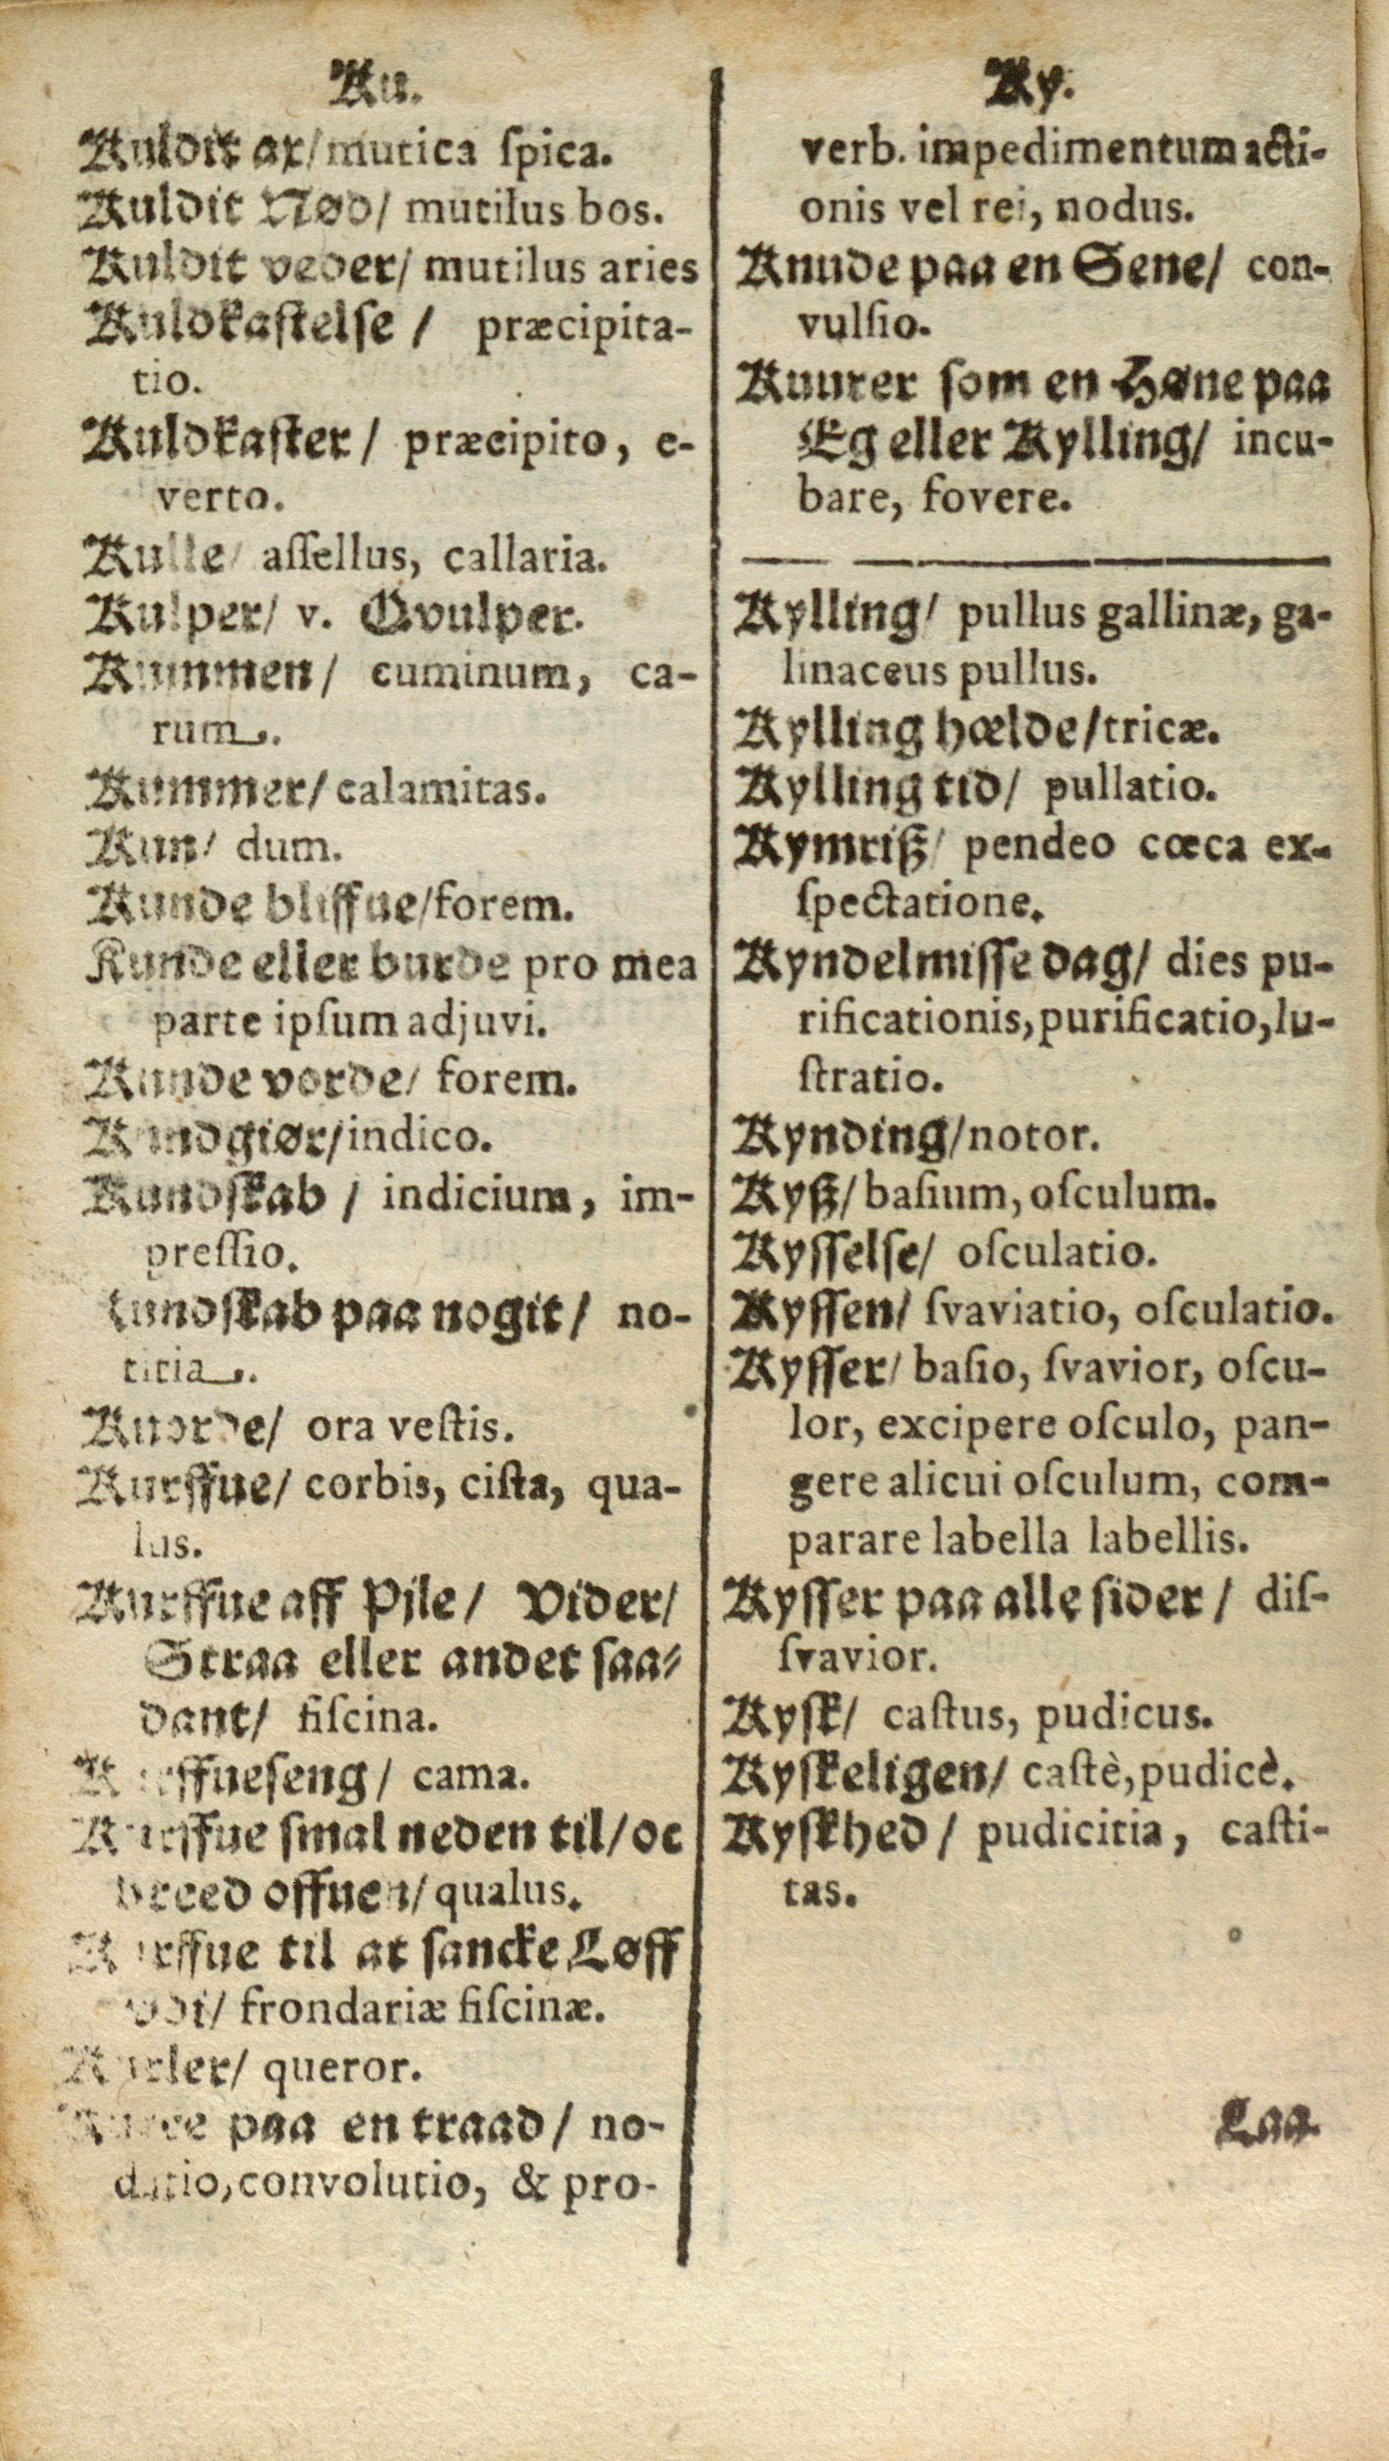 Ku.
Kuldit ax/mutica ſpica.
Kuldit Nød/ mutilus bos.
Kuldit veder/ mutilus aries
Kuldkaſtelſe / præcipita-
tio.
Kuldkaſter/ præcipito, e-
verto.
Kulle/ aſſellus, callaria.
Kulper/ v. Qvulper.
Kummen/ cuminum, ca-
rum.
Kummer/ calamitas.
Kun/ dum.
Kunde bliffue/forem.
Kunde eller burde pro mea
parte ipſum adjuvi.
Kunde vorde/ forem.
Kundgiør/indico.
Kundſkab / indicium, im-
preſſio.
Kundſkab paa nogit/ no-
titia.
ora veſtis.
Kurffue/ corbis, ciſta, qua-
lus.
Kurffue aff Pile/ Vider/
Straa eller andet ſaa-
dant/ fiſcina.
Kurffueſeng/ cama.
Kurffue ſmal neden til/oc
breed offuen/ qualus.
Kurffue til at ſancke Løff
vdi/ frondariæ fiſcinæ.
Kurler/ queror.
paa en traad/ no-
datio, convolutio, & pro-
Ky.
verb. impedimentum acti-
onis vel rei, nodus.
Knude paa en Sene/ con-
vulſio.
Kuurer ſom en Høne paa
Eg eller Kylling/ incu-
bare, fovere.
Kylling/ pullus gallinæ, ga-
linaceus pullus.
Kylling hælde/tricæ.
Kylling tid/ pullatio.
Kymriß/ pendeo cœca ex-
ſpectatione.
Kyndelmiſſe dag/ dies pu-
rificationis, purificatio, lu-
ſtratio.
Kynding/notor.
Kyß/ baſium, oſculum.
Kyſſelſe/ oſculatio.
Kyſſen/ ſvaviatio, oſculatio.
Kyſſer/ baſio, ſvavior, oſcu-
lor, excipere oſculo, pan-
gere alicui oſculum, com-
parare labella labellis.
Kyſſer paa alle ſider / diſ-
ſvavior.
Kyſk/ caſtus, pudicus.
Kyſkeligen/ caſtè, pudicè.
Kyſkhed / pudicitia, caſti-
tas.
Laa